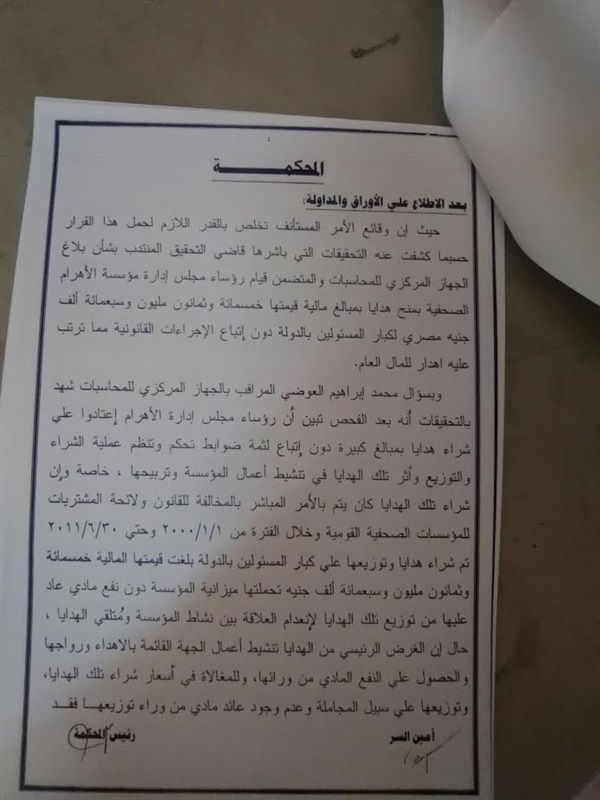 المحكمة
بعد الاطلاع علي الأوراق والمداولة:
حيث إن وقائع الأمر المستأنف تخلص بالقدر اللازم لحمل هذا القرار
حسبما كشفت عنه التحقيقات التي باشرها قاضي التحقيق المنتدب بشأن بلاغ
الجهاز المركزي للمحاسبات والمتضمن قيام رؤساء مجلس إدارة مؤسسة الأهرام
الصحفية بمنح هدايا بمبالغ مالية قيمتها خمسمائة وثمانون مليون وسبعمائة ألف
جنيه مصري لكبار المسئولين بالدولة دون إتباع الإجراءات القانونية مما ترتب
عليه اهدار للمال العام.
وبسؤال محمد إبراهيم العوضي المراقب بالجهاز المركزي للمحاسبات شهد
بالتحقيقات أنه بعد الفحص تبين أن رؤساء مجلس إدارة الأهرام إعتادوا علي
شراء هدايا بمبالغ كبيرة دون إتباع لثمة ضوابط تحكم وتنظم عملية الشراء
والتوزيع وأثر تلك الهدايا في تنشيط أعمال المؤسسة وتربيحها ، خاصة وإن
شراء تلك الهدايا كان يتم بالأمر المباشر بالمخالفة للقانون ولائحة المشتريات
للمؤسسات الصحفية القومية وخلال الفترة من ٢٠٠٠/١/١ وحتي ٢٠١١/٦/٣٠
تم شراء هدايا وتوزيعها علي كبار المسئولين بالدولة بلغت قيمتها المالية خمسمائة
وثمانون مليون وسبعمائة ألف جنيه تحملتها ميزانية المؤسسة دون نفع مادي عاد
عليها من توزيع تلك الهدايا لإنعدام العلاقة بين نشاط المؤسسة ومُتلقي الهدايا ،
حال إن الغرض الرئيسي من الهدايا تنشيط أعمال الجهة القائمة بالاهداء ورواجها
والحصول علي النفع المادي من ورائها، وللمغالاة في أسعار شراء تلك الهدايا،
وتوزيعها علي سبيل المجاملة وعدم وجود عائد مادي من وراء توزيعها فقد
أمين السر
رئيس المحكمة